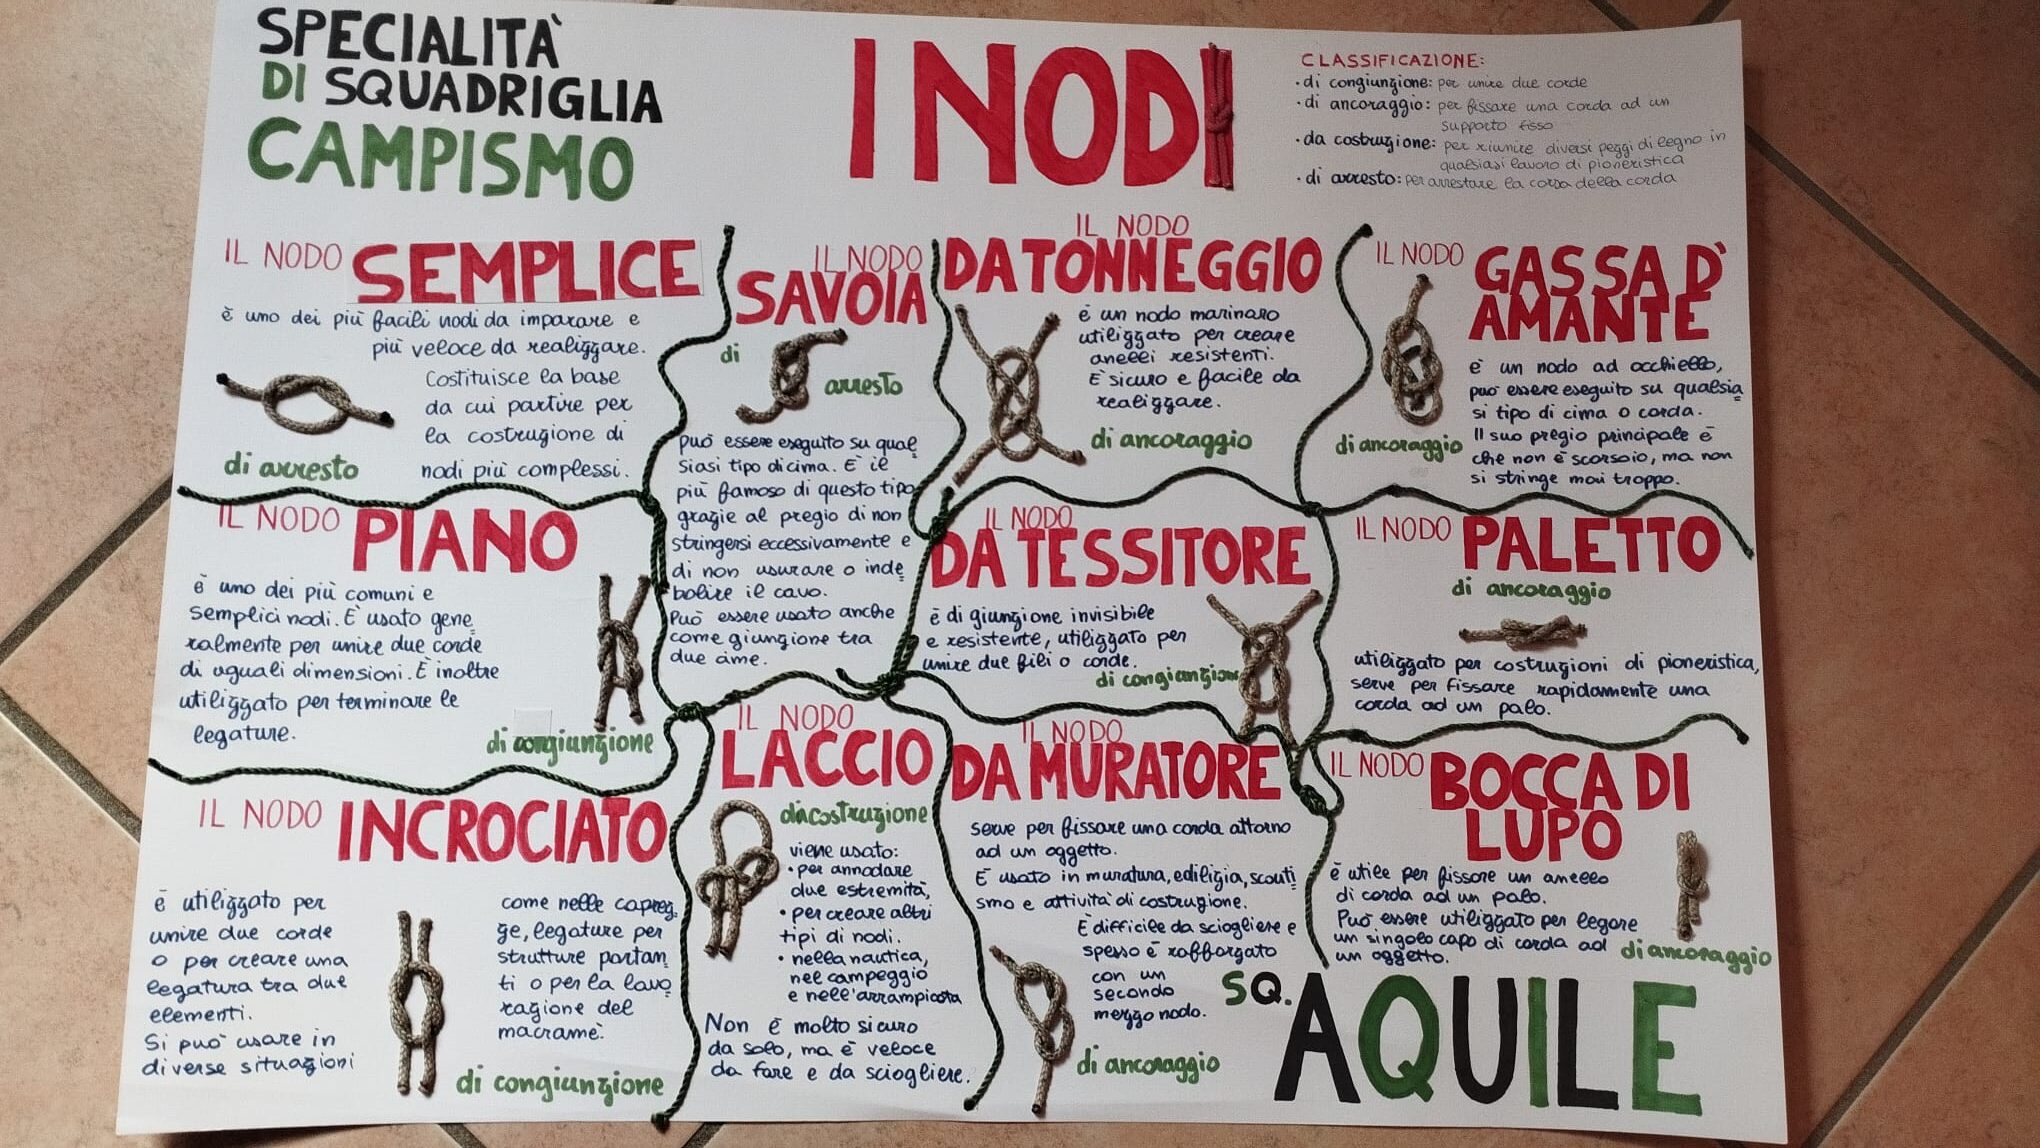 SPECIALITÀ
DI SQUADRIGLIA
CAMPISMO
I NODI
CLASSIFICAZIONE:
• di congiunzione: per unire due corde
• di ancoraggio: per fissare una corda ad un
supporto fisso
• da costruzione: per riunire diversi pezzi di legno in
qualsiasi lavoro di pioneristica
• di arresto: per arrestare la corsa della corda
IL NODO SEMPLICE
è uno dei più facili nodi da imparare e
più veloce da realizzare.
Costituisce la base
da cui partire per
la costruzione di
nodi più complessi.
di arresto
IL NODO
SAVOIA
di
arresto
può essere eseguito su qual
siasi tipo di cima. È il
più famoso di questo tipo
grazie al pregio di non
stringersi eccessivamente e
di non usurare o inde
bolire il cavo.
Può essere usato anche
come giunzione tra
due cime.
IL NODO
DA TONNEGGIO
è un nodo marinaro
utilizzato per creare
anelli resistenti.
È sicuro e facile da
realizzare.
di ancoraggio
IL NODO GASSA D'
AMANTE
è un nodo ad occhiello,
può essere eseguito su qualsia
si tipo di cima o corda.
Il suo pregio principale è
che non è scorsoio, ma non
si stringe mai troppo.
di ancoraggio
IL NODO PIANO
è uno dei più comuni e
semplici nodi. È usato gene
ralmente per unire due corde
di uguali dimensioni. È inoltre
utilizzato per terminare le
legature.
di congiunzione
IL NODO
DA TESSITORE
è di giunzione invisibile
e resistente, utilizzato per
unire due fili o corde.
di congiunzione
IL NODO PALETTO
di ancoraggio
utilizzato per costruzioni di pioneristica,
serve per fissare rapidamente una
corda ad un palo.
IL NODO INCROCIATO
è utilizzato per
unire due corde
o per creare una
legatura tra due
elementi.
Si può usare in
diverse situazioni
come nelle capreg
ge, legature per
strutture portan
ti o per la lavo
razione del
macramè.
di congiunzione
IL NODO
LACCIO
da costruzione
viene usato:
• per annodare
due estremità,
• per creare altri
tipi di nodi.
• nella nautica,
nel campeggio
e nell'arrampicata
Non è molto sicuro
da solo, ma è veloce
da fare e da sciogliere.
IL NODO
DA MURATORE
serve per fissare una corda attorno
ad un oggetto.
È usato in muratura, edilizia, scouti
smo e attività di costruzione.
È difficile da sciogliere e
spesso è rafforzato
con un
secondo
mezzo nodo.
di ancoraggio
IL NODO BOCCA DI
LUPO
è utile per fissare un anello
di corda ad un palo.
Può essere utilizzato per legare
un singolo capo di corda ad
un oggetto.
di ancoraggio
SQ. AQUILE